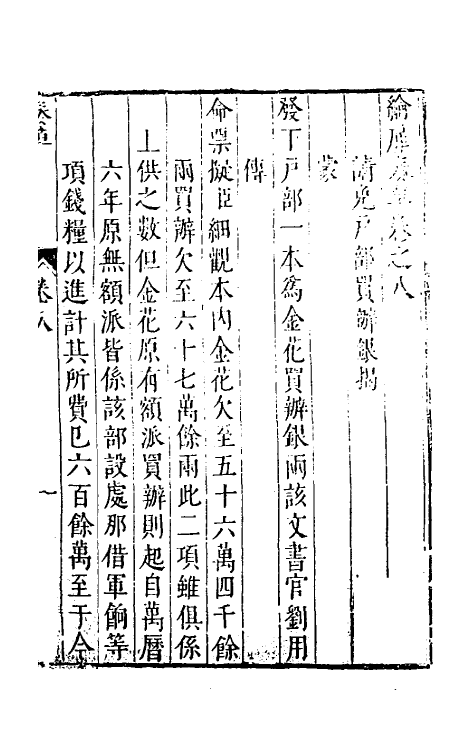 綸扉奏草卷之八
請免戶部買辦銀揭
蒙
發下戶部一本爲金花買辦銀兩該文書官劉用
傳
命票擬臣細觀本內金花欠至五十六萬四千餘
兩買辦欠至六十七萬餘兩此二項雖俱係
上供之數但金花原有額派買辦則起自萬曆
六年原無額派皆係該部設處那借軍餉等
項錢糧以進計其所費已六百餘萬至于今
卷八
一